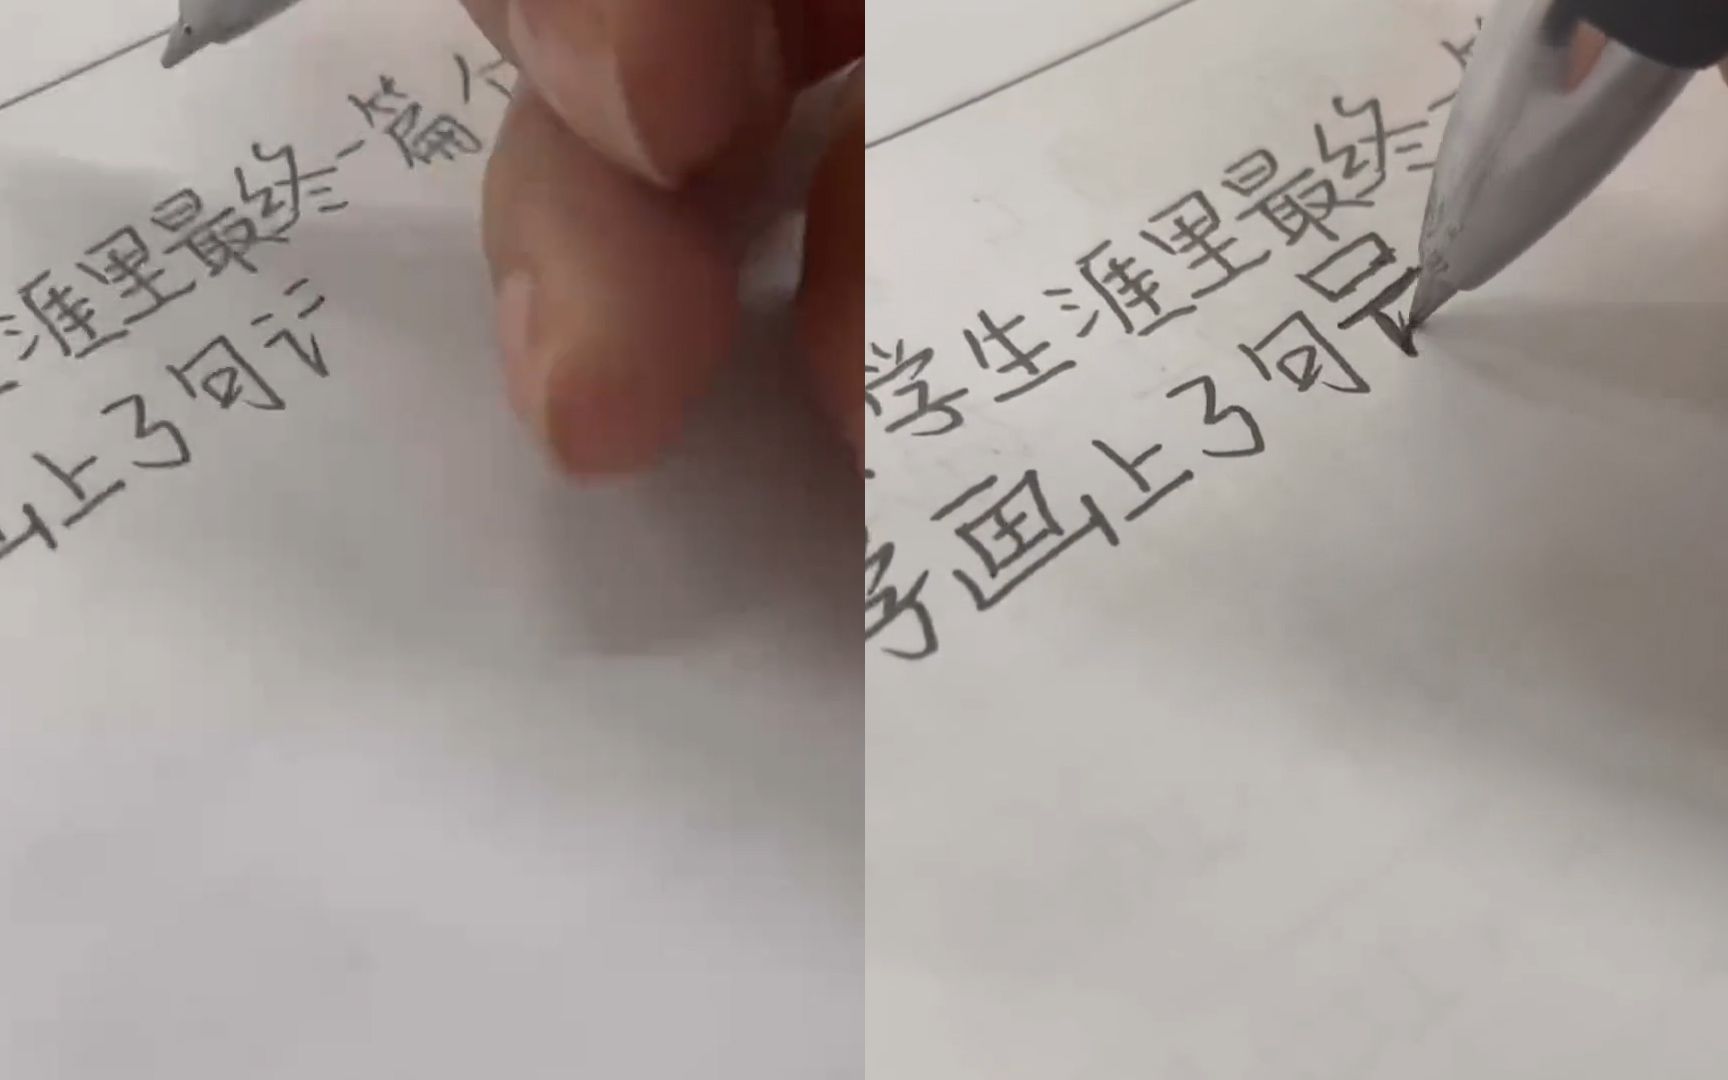 涯里最终一篇
上了句
学生涯里最终
画上了句